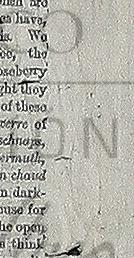 nen are
es have,
is. We
ce, the
oseberry
ght they
of these
verre of
schnaps,
ermuth,
n chaud
n dark-
ouse for
he open
s think